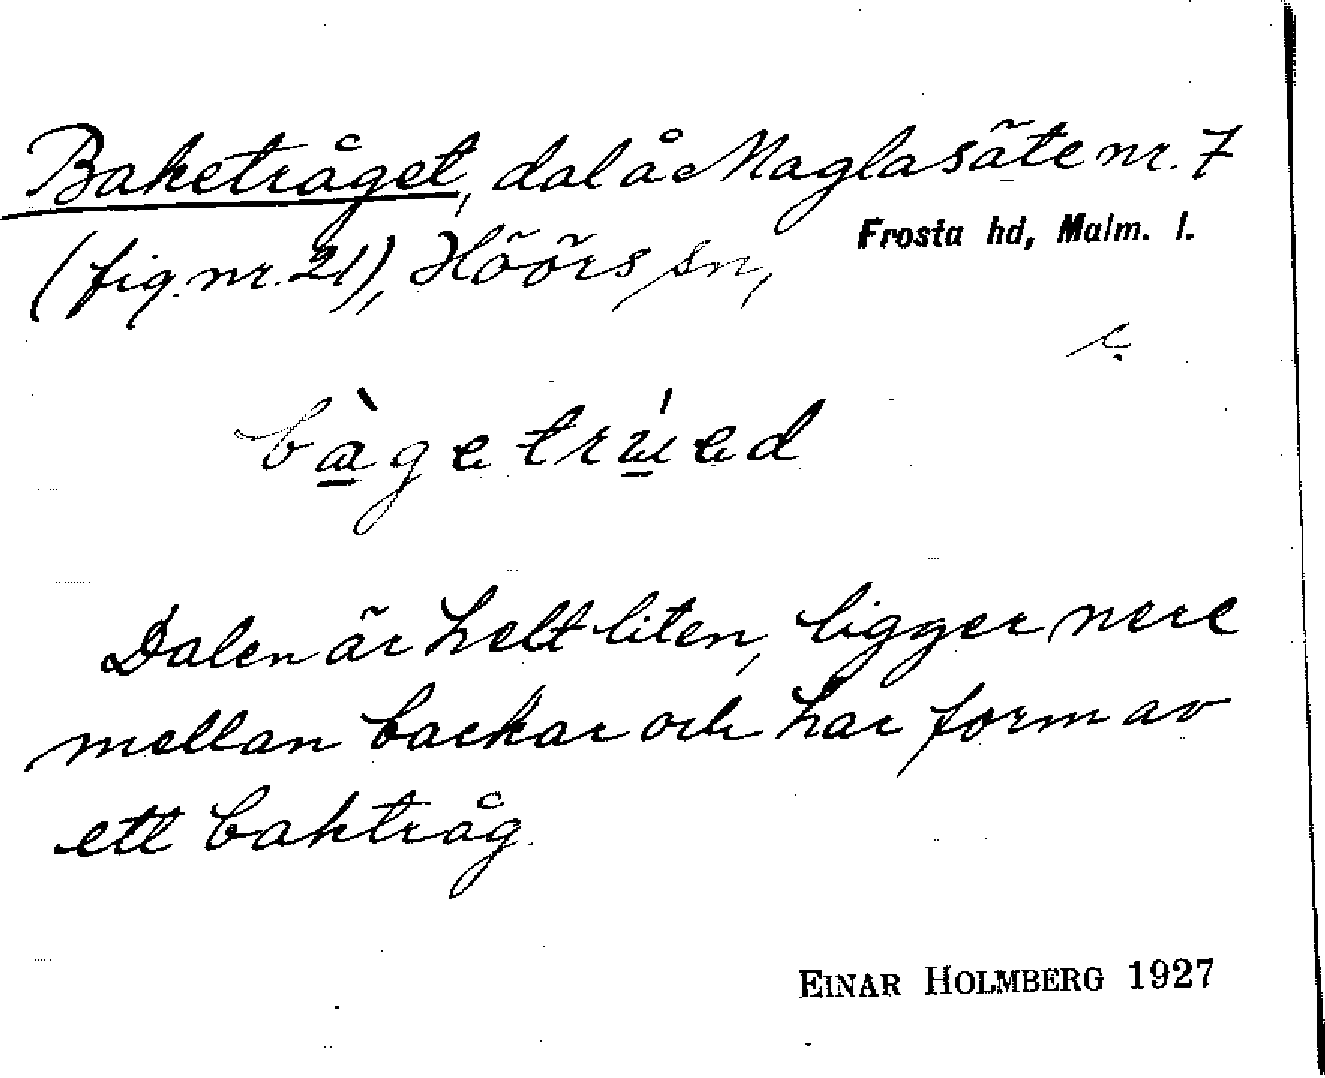 Baketråget, dal å Maglasäte nr. 7
Frosta hd, Malm. l.
(fig. nr. 21), Höörs sn,
bàgetrúed
Dalen är helt liten, ligger nere
mellan backar och har form av
ett baktråg.
EINAR HOLMBERG 1927